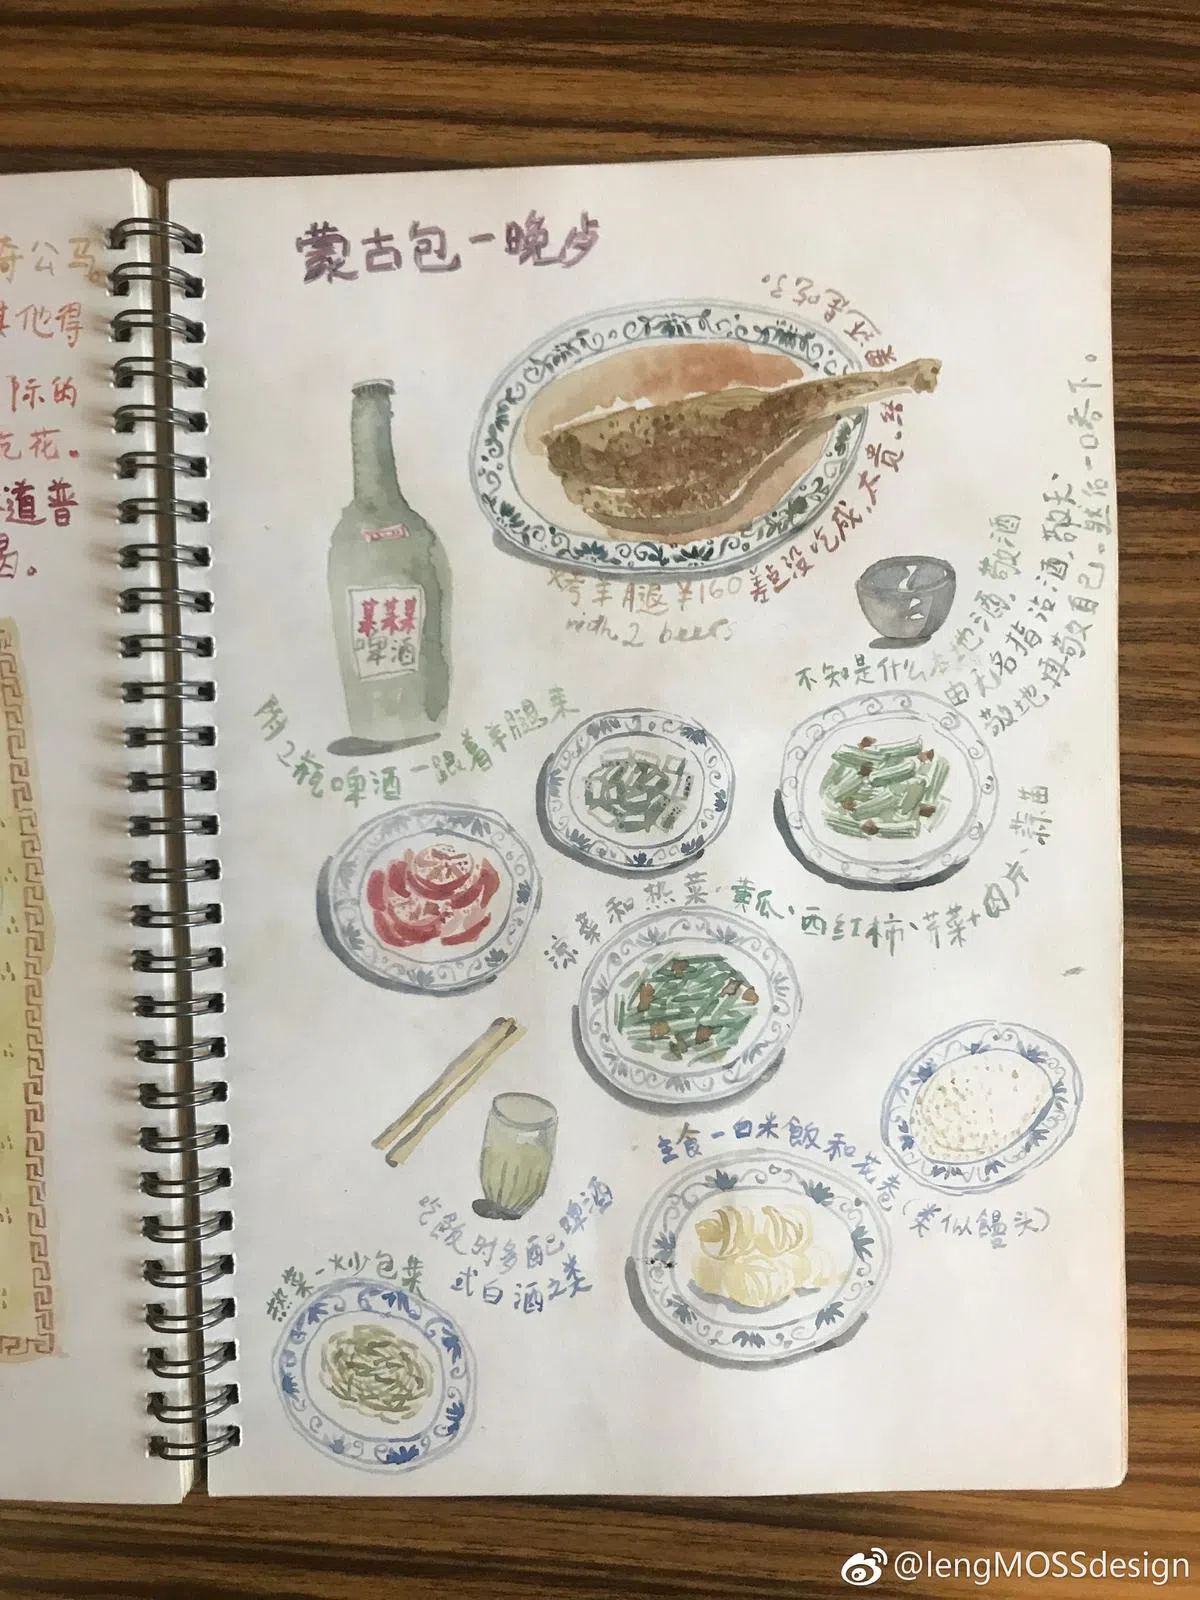 奇公马。
其他得
际的
吃花。
道普
喝。
蒙古包一晚上
烤羊腿￥160 差点没吃成,太贵。结果还是吃了。
with 2 beers
某某某
啤酒
附2瓶啤酒一跟着羊腿来
不知是什么本地酒。敬酒
由无名指沾酒,敬天
敬地再敬自己。然后一口吞下。
凉菜和热菜·黄瓜、西红柿、芹菜+肉片、蒜苗
主食一白米飯和花卷(类似馒头)
吃飯时多配啤酒
或白酒之类
热菜一炒包菜
@lengMOSSdesign